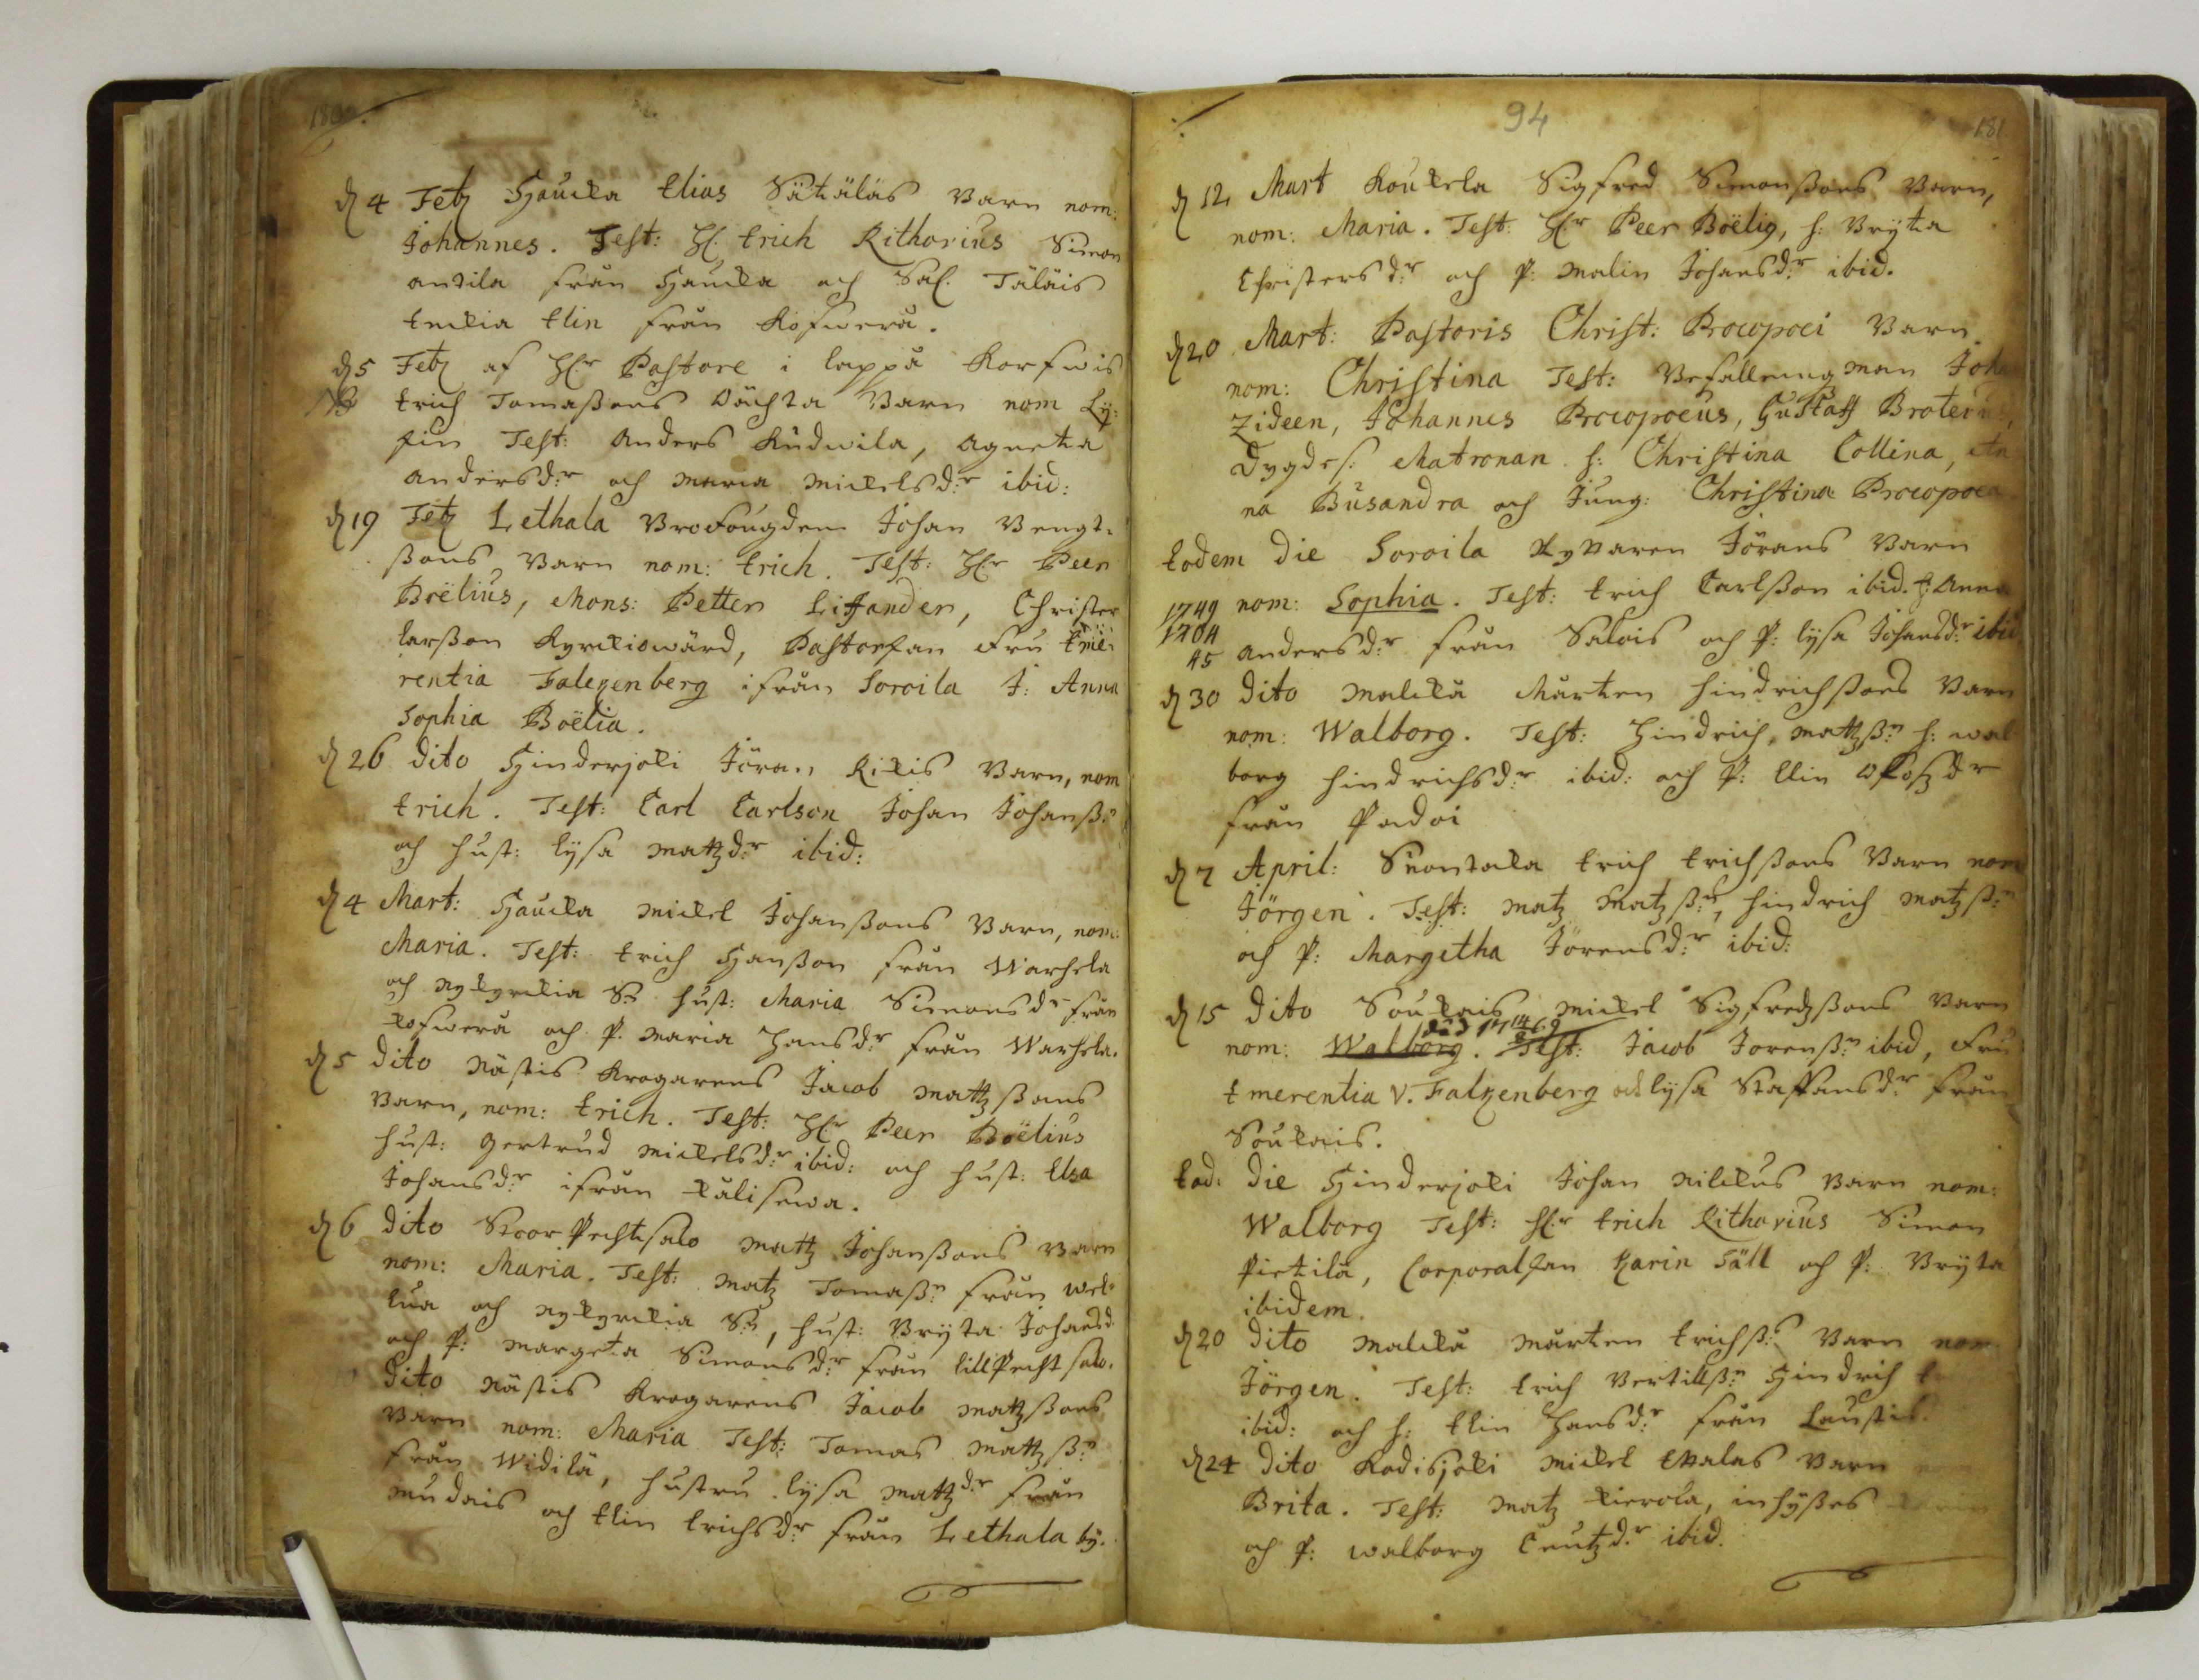 180.
d 4 Feb Haucka Elias Sätäläs Barn nom:
Johannes. Test: H. Erich Rithorius Simon
antila från Haucka och Sal. Täläis
Enckia Elin från Kofwera.
d 5 Feb af H:r Pastore i Lappå Korfwis
NB Erich Tomaßons Döchta Barn nom Ly-
sin Test: Anders Rudwila, Agneta
andersd:r och Maria Mickelsd:r ibid:
d 19 Feb Lethala Brofougden Johan Bengt-
ßons Barn nom: Erich. Test: H:r Peer
Boëlius, Mons: Petter Lissander, Christer
Larßon Kyrckiowärd, Pastorskan Fru Eme-
rentia Falckenberg ifrån Soroila J: Anna
Sophia Boëlia.
d 26 dito Hinderjoki Jöran Kikis Barn, nom
Erich. Test: Carl Carlson Johan Johanß:n
och hust: Lysa Mattzd:r ibid:
d 4 Mart: Haucka Mickel Johanßons Barn, nom:
Maria. Test: Erich Hanßon från Warhela
och Nykyrckia S:n hust: Maria Simonsd:r från
Kofwera och P. Maria Hansd:r från Warhela.
d 5 dito Nästis Krogarens Jacob Mattzßons
Barn, nom: Erich. Test: H:r Peer Boëlius
hust: Gertrud Mickelsd:r ibid: och hust: Elsa
Johansd:r ifrån Kälisewa.
d 6 dito Stoor Pechtsalo Mattz Johanßons Barn
nom: Maria. Test: Matz Tomaß:n från Wel-
lua och Nykyrckia S:n, hust: Bryta Johansd.
och P: Margeta Simonsd:r från lillPechtsalo.
dito Nästis Krogarens Jacob Mattzßons
Barn nom: Maria Test: Tomas Mattzß:n
från Widilä, hustru Lysa Mattzd:r från
Mudais och Elin Erichsd:r från Lethala by.
94
181.
d 12 Mart Koukela Sigfred Simonßons Barn,
nom: Maria. Test: H:r Peer Boëlig, h: Bryta
Christersd:r och P: Malin Johansd:r ibid.
d 20 Mart: Pastoris Christ: Procopoei Barn
nom: Christina Test: Befallningman Joha
Zideen, Johannes Procopoeus, Gustaff Broterus,
Dygdes: Matronan h: Christina Collina, An
na Busandra och Jung: Christina Procopoea
Eodem die Soroila Ryttaren Jörans Barn
1749 nom: Sophia. Test: Erich Carlßon ibid. h: Anna
1704
45 andersd:r från Salois och P: Lysa Johansd:r ibid
d 30 dito Malckå Mårten Hindrichßons Barn
nom: Walborg. Test: Hindrich Mattzß:n h: Wal
borg Hindrichsd:r ibid: och P: Elin
från Padoi
d 7 April: Suontaka Erich Erichßons Barn nom
Jörgen. Test: Matz Matzß:n, Hindrich Matzß:n
och P: Margetha Jörensd:r ibid:
d 15 dito Soukais Mickel Sigfredßons Barn
nom: Walborg. Test: Jacob Jorenß:n ibid, Fru
Emerentia V. Falckenberg och Lysa Staffansd:r från
Soukais.
Eod: die Hinderjoki Johan Nilckus Barn nom:
Walborg Test: H:r Erich Rithorius Simon
Pietilä, Corporalskan Karin Fäll och P: Bryta
ibidem.
d 20 dito Malckå Mårten Erichß:s Barn nom
Jörgen. Test: Erich Bertillß:n Hindrich E
ibid: och h: Elin Hansd:r från Laustis.
d 24 dito Kodisjoki Mickel Ettalas Barn
Brita. Test: Matz Kierola, inhyßes
och P: Walborg Cnutzd:r ibid.